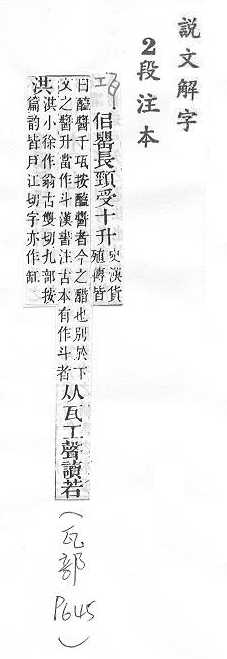 説文解字
2段注本
瓨 佀罌長頸受十升
史漢貨
殖傳皆
曰醯醬千瓨按醯醬者今之醋也別於下
文之醬升當作斗漢書注古本有作斗者
从瓦工聲讀若
洪
洪小徐作翁古雙切九部按
篇韵皆戶江切字亦作缸
(瓦部 P645)